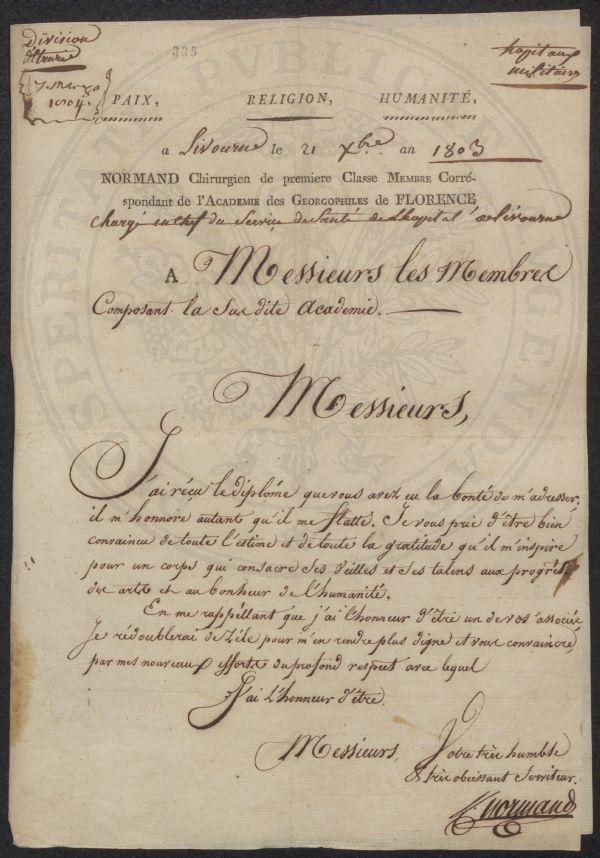 Division
d'Etrurie
335
hopitaux
militaires
7. Marzo
1804.
PAIX, RELIGION, HUMANITÉ,
a Livourne le 21 Xbre an 1803
NORMAND Chirurgien de premiere Classe MEMBRE CORRÉ-
spondant de l'ACADEMIE des GEORGOPHILES de FLORENCE
Chargé en chef du Service de Santé de L'hopital de Livourne
A Messieurs les Membres
Composant la Sus dite Academie.
Messieurs,
J'ai réçu le diplôme que vous avez eu la bonté de m'adresser;
il m'honnore autant qu'il me flatte. Je vous prie d'être bien
convaincu de toute l'estime et de toute la gratitude qu'il m'inspire
pour un corps qui consacre ses veilles et ses talens aux progrès
des arts et au bonheur de l'humanité.
En me rappéllant que j'ai l'honneur d'être un de vos associés
Je rédoublerai de zéle pour m'en rendre plus digne et vous convaincre,
par mes nouveaux efforts du profond respect avec lequel
J'ai L'honneur d'être.
Messieurs, Votre très humble
& très obeissant Serviteur.
Normand
PROSPERITATI PUBLICAE AUGENDAE